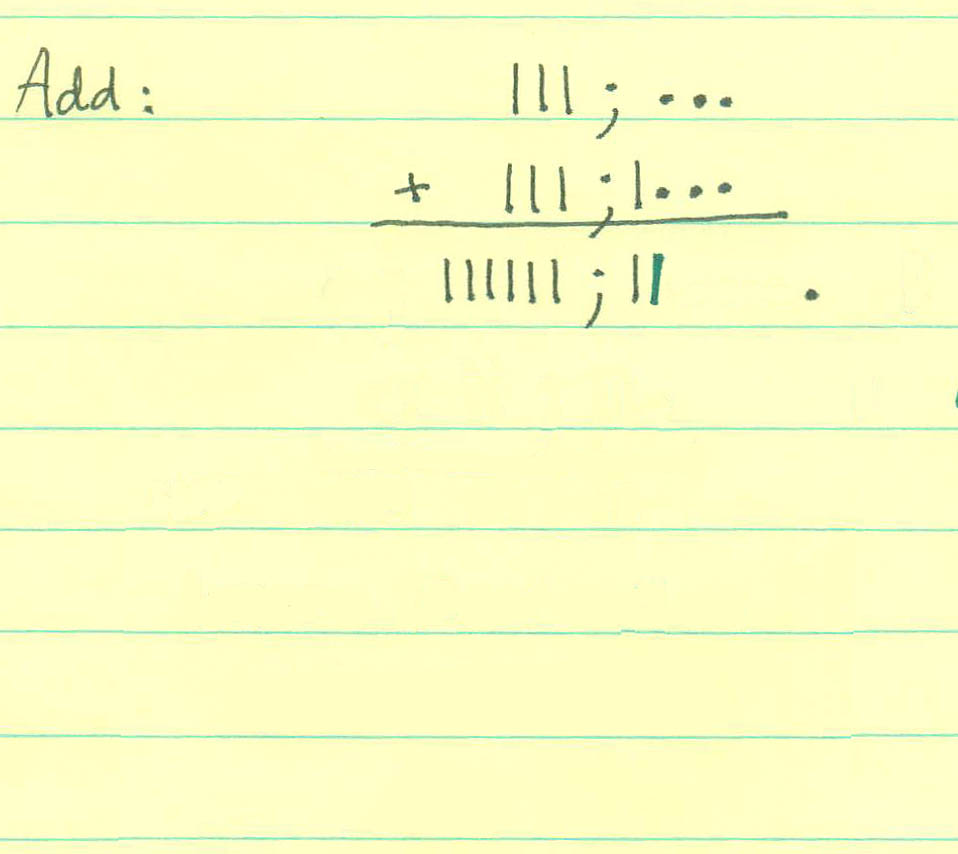 Add: ||| ; •••
+ ||| ; |•••
|||||| ; || •